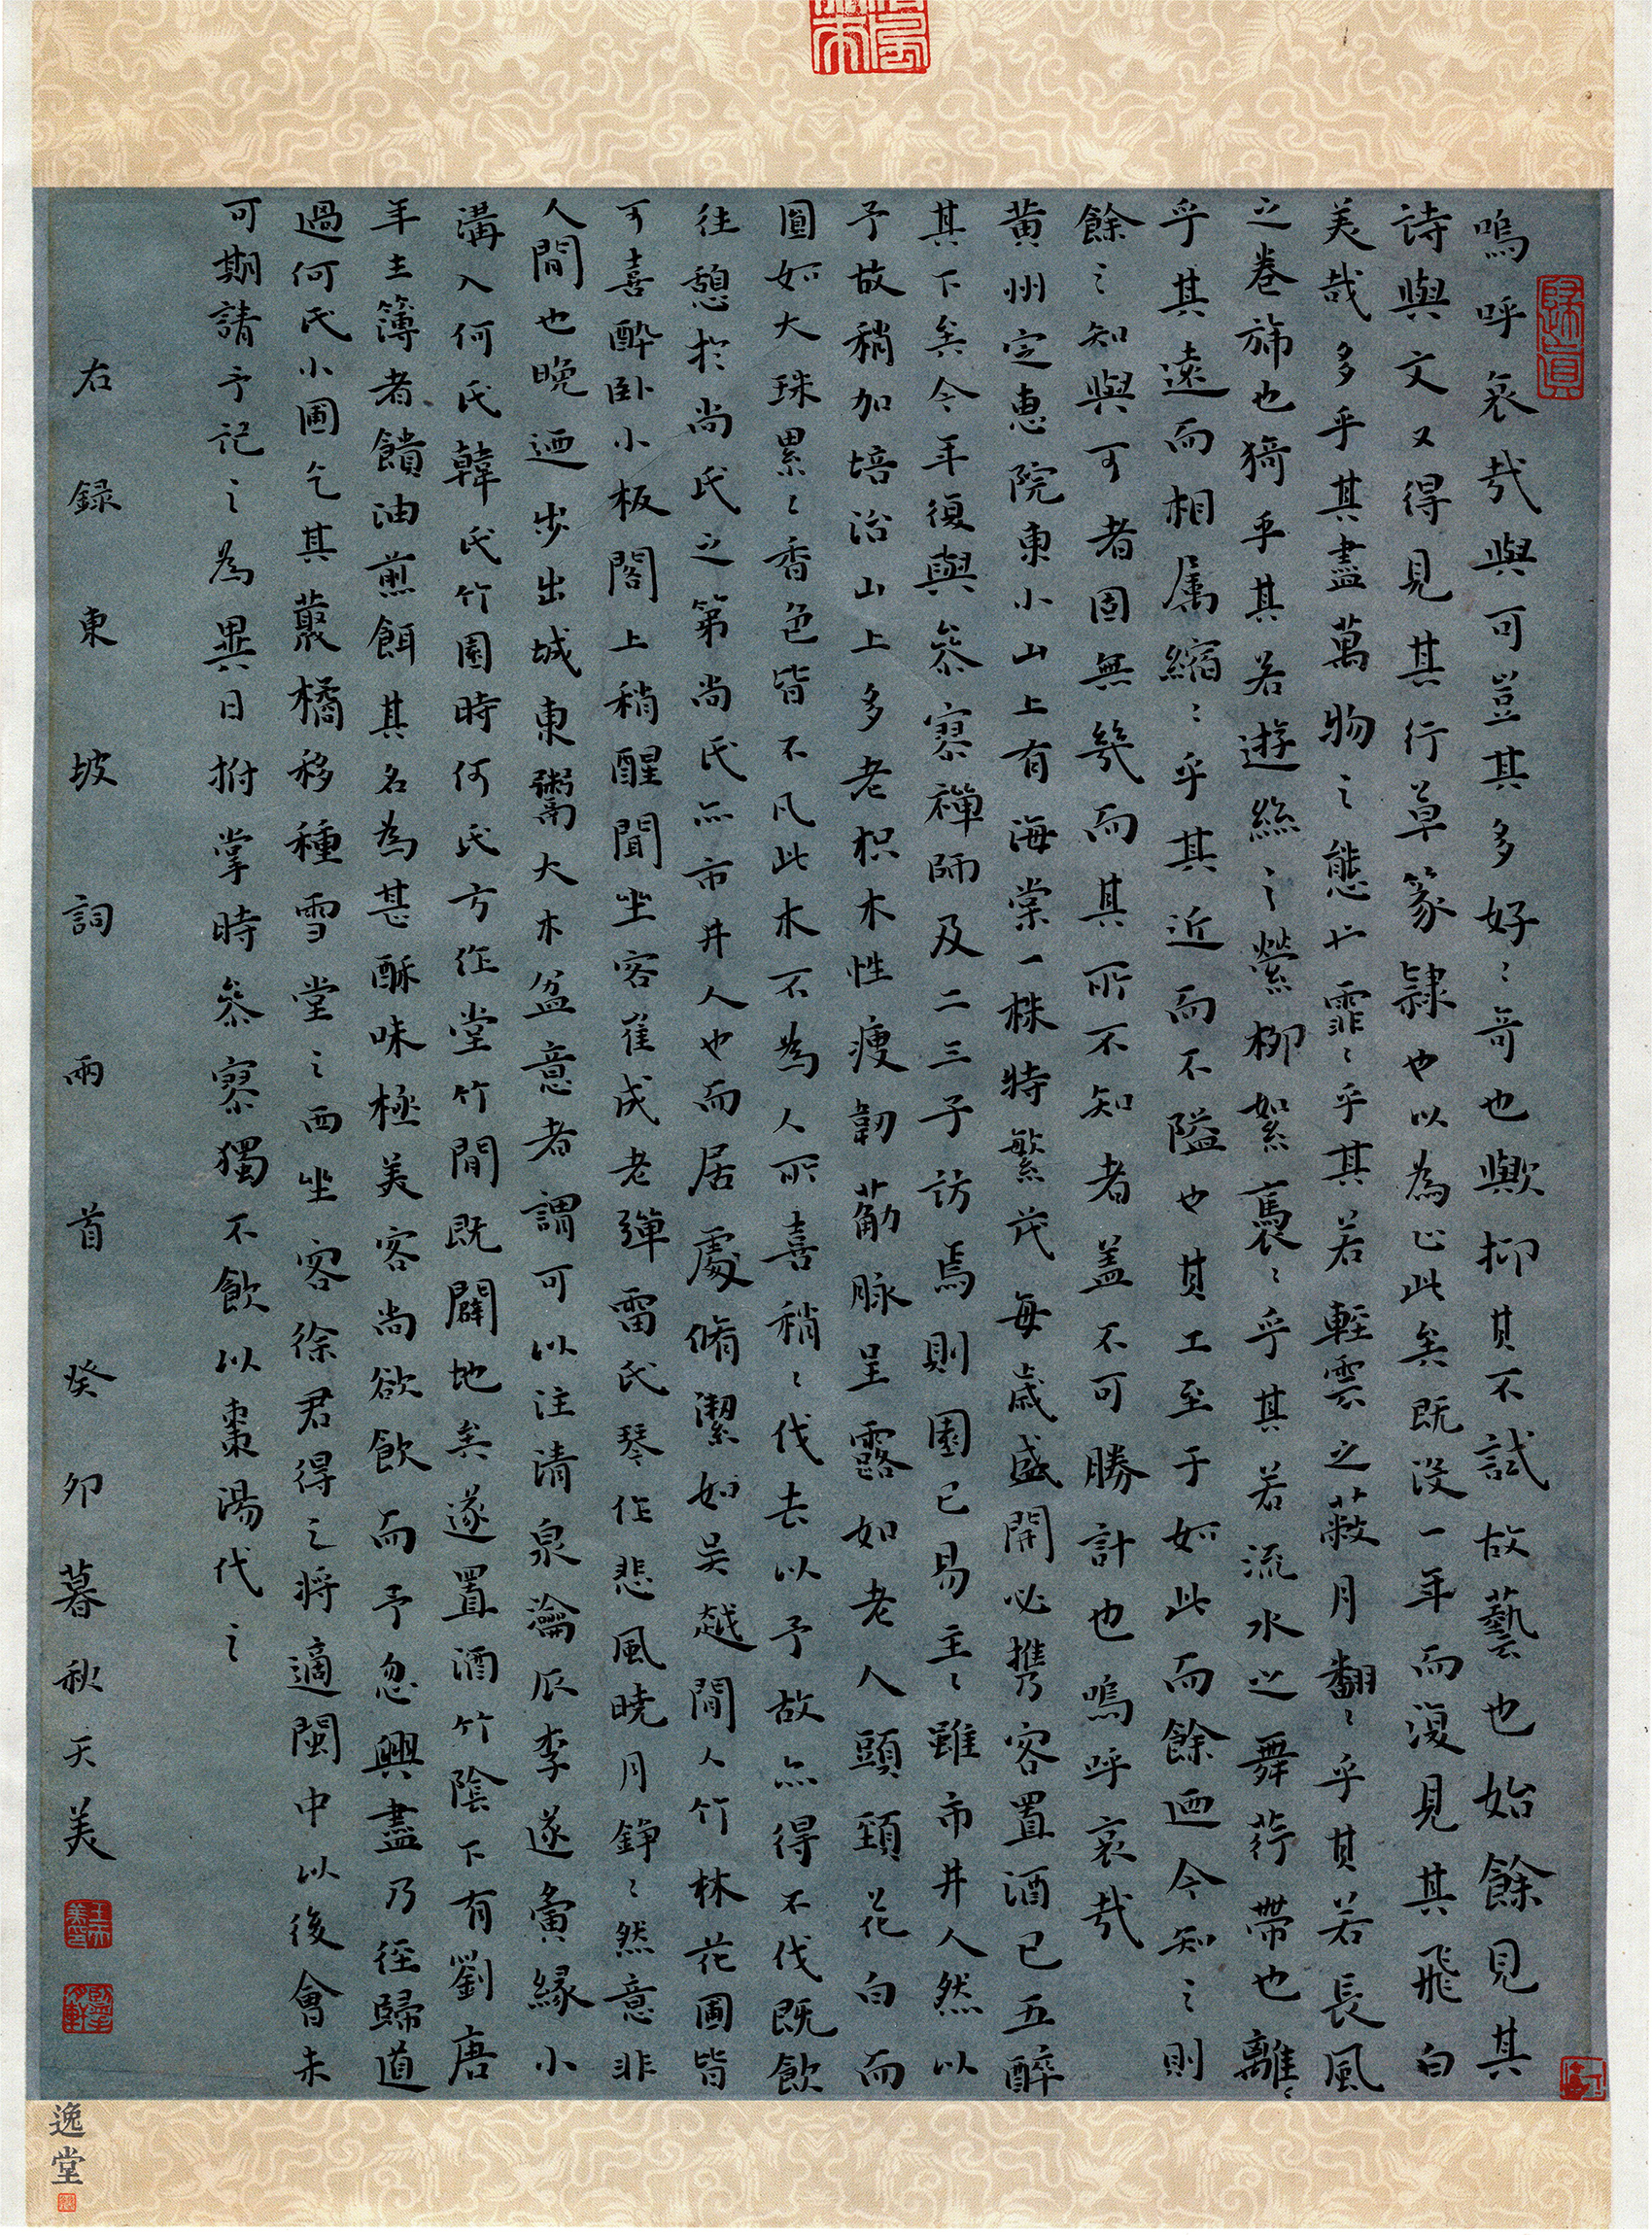 嗚呼哀哉與可豈其多好〻奇也歟抑其不試故藝也始餘見其
詩與文又得見其行草篆隸也以為止此矣既沒一年而復見其飛白
美哉多乎其盡萬物之態也霏〻乎其若輕雲之蔽月翻〻乎其若長風
之卷旆也猗乎其若遊絲之縈柳絮裊〻乎其若流水之舞荇帶也離〻
乎其遠而相属縮〻乎其近而不隘也其工至于如此而餘迺今知之則
餘之知與可者固無幾而其所不知者盖不可勝計也嗚呼哀哉
黄州定惠院東小山上有海棠一株特繁茂每歲盛開必携客置酒已五醉
其下矣今年復與叅寥禪師及二三子訪焉則園已易主〻雖市井人然以
予故稍加培治山上多老枳木性瘦韌萮脉呈露如老人頭頸花白而
圓如大珠累〻香色皆不凡此木不為人所喜稍〻伐去以予故亦得不伐既飲
往憩於尚氏之第尚氏亦市井人也而居處脩潔如吴越間人竹林花圃皆
可喜醉卧小板閣上稍醒聞坐客崔成老彈雷氏琴作悲風曉月錚〻然意非
人間也晚迺步出城東鬻大木盆意者謂可以注清泉瀹瓜李遂夤緣小
溝入何氏韓氏竹園時何氏方作堂竹間既闢地矣遂置酒竹陰下有劉唐
年主簿者饋油煎餌其名為甚酥味極美客尚欲飲而予忽興盡乃徑歸道
過何氏小圃乞其藂橘移種雪堂之西坐客徐君得之將適閩中以後會未
可期請予記之為異日拊掌時叅寥獨不飲以棗湯代之
右録東坡詞兩首癸卯暮秋天美
逸堂